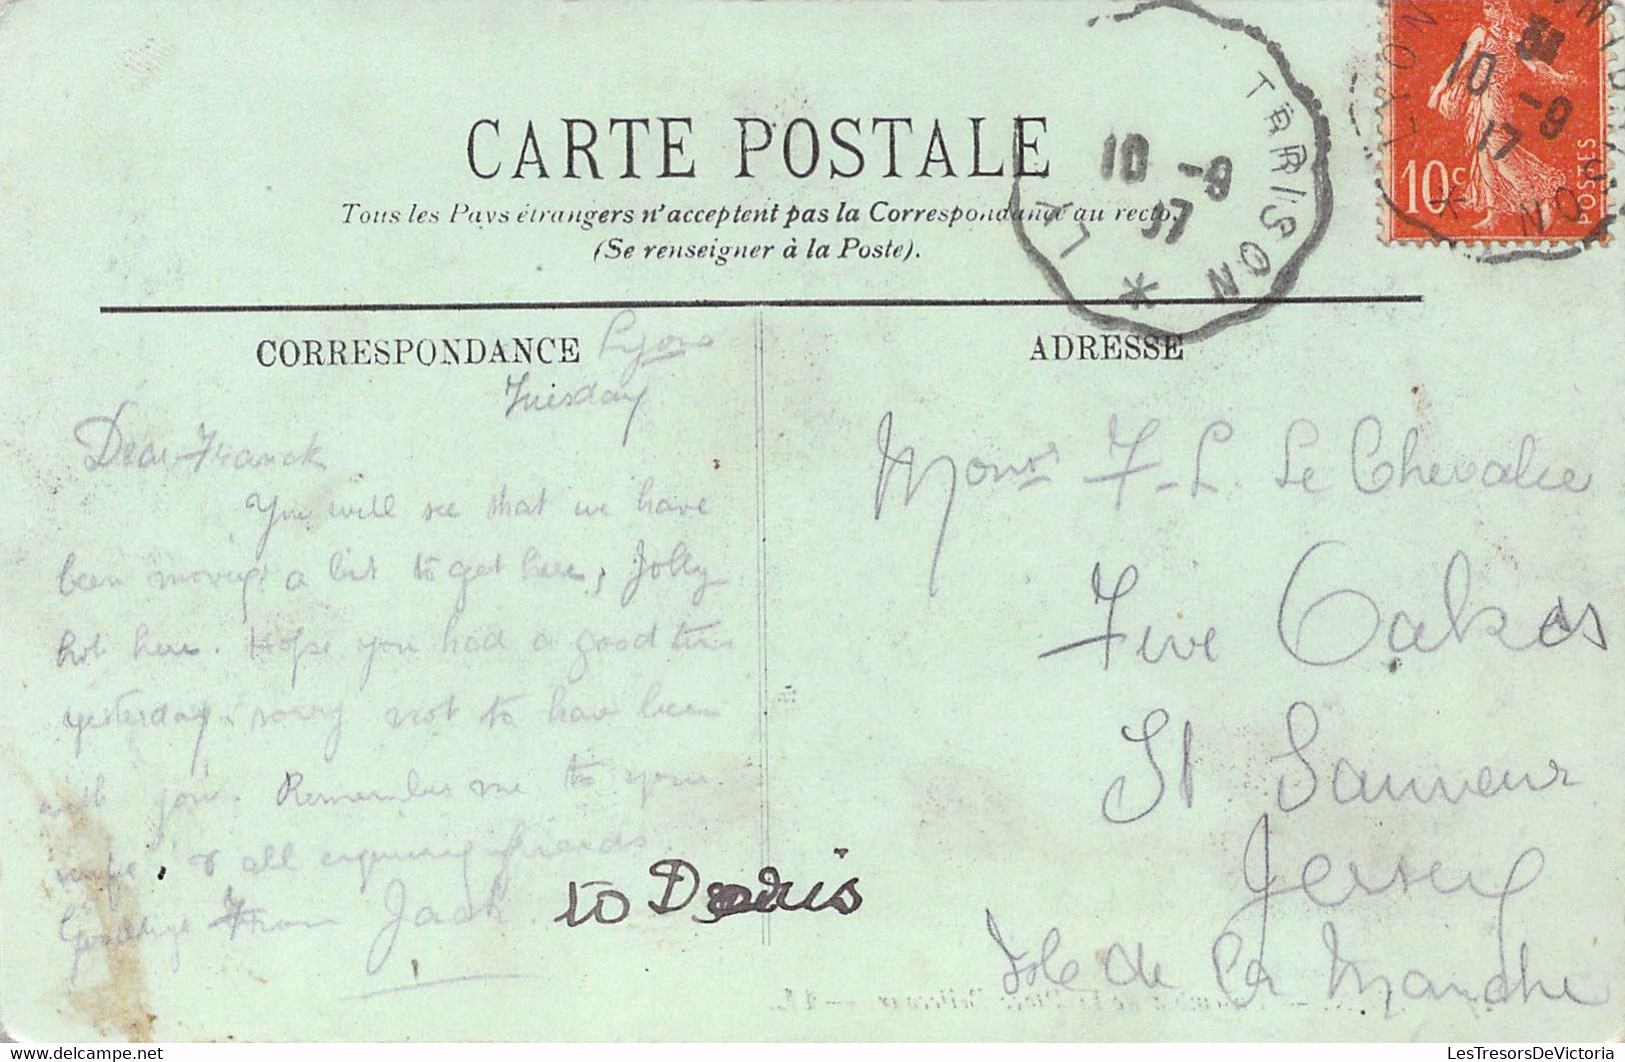 CARTE POSTALE
Tous les Pays étrangers n'acceptent pas la Correspondance au recto.
(Se renseigner à la Poste).
10 -9
17
10 -9
17
LYON
10c
POSTES
CORRESPONDANCE
Lyons
Tuesday
Dear Franck
You will see that we have
been moving a bit to get here, Jolly
hot here. Hope you had a good time
yesterday, sorry not to have been
with you. Remember me to your
wife, & all enquiring friends.
Goodbye From Jack.
to Doris
ADRESSE
Monsr F-L. Le Chevalier
Five Oakes
St Sauveur
Jersey
Isle de La Manche
LesTresorsDeVictoria